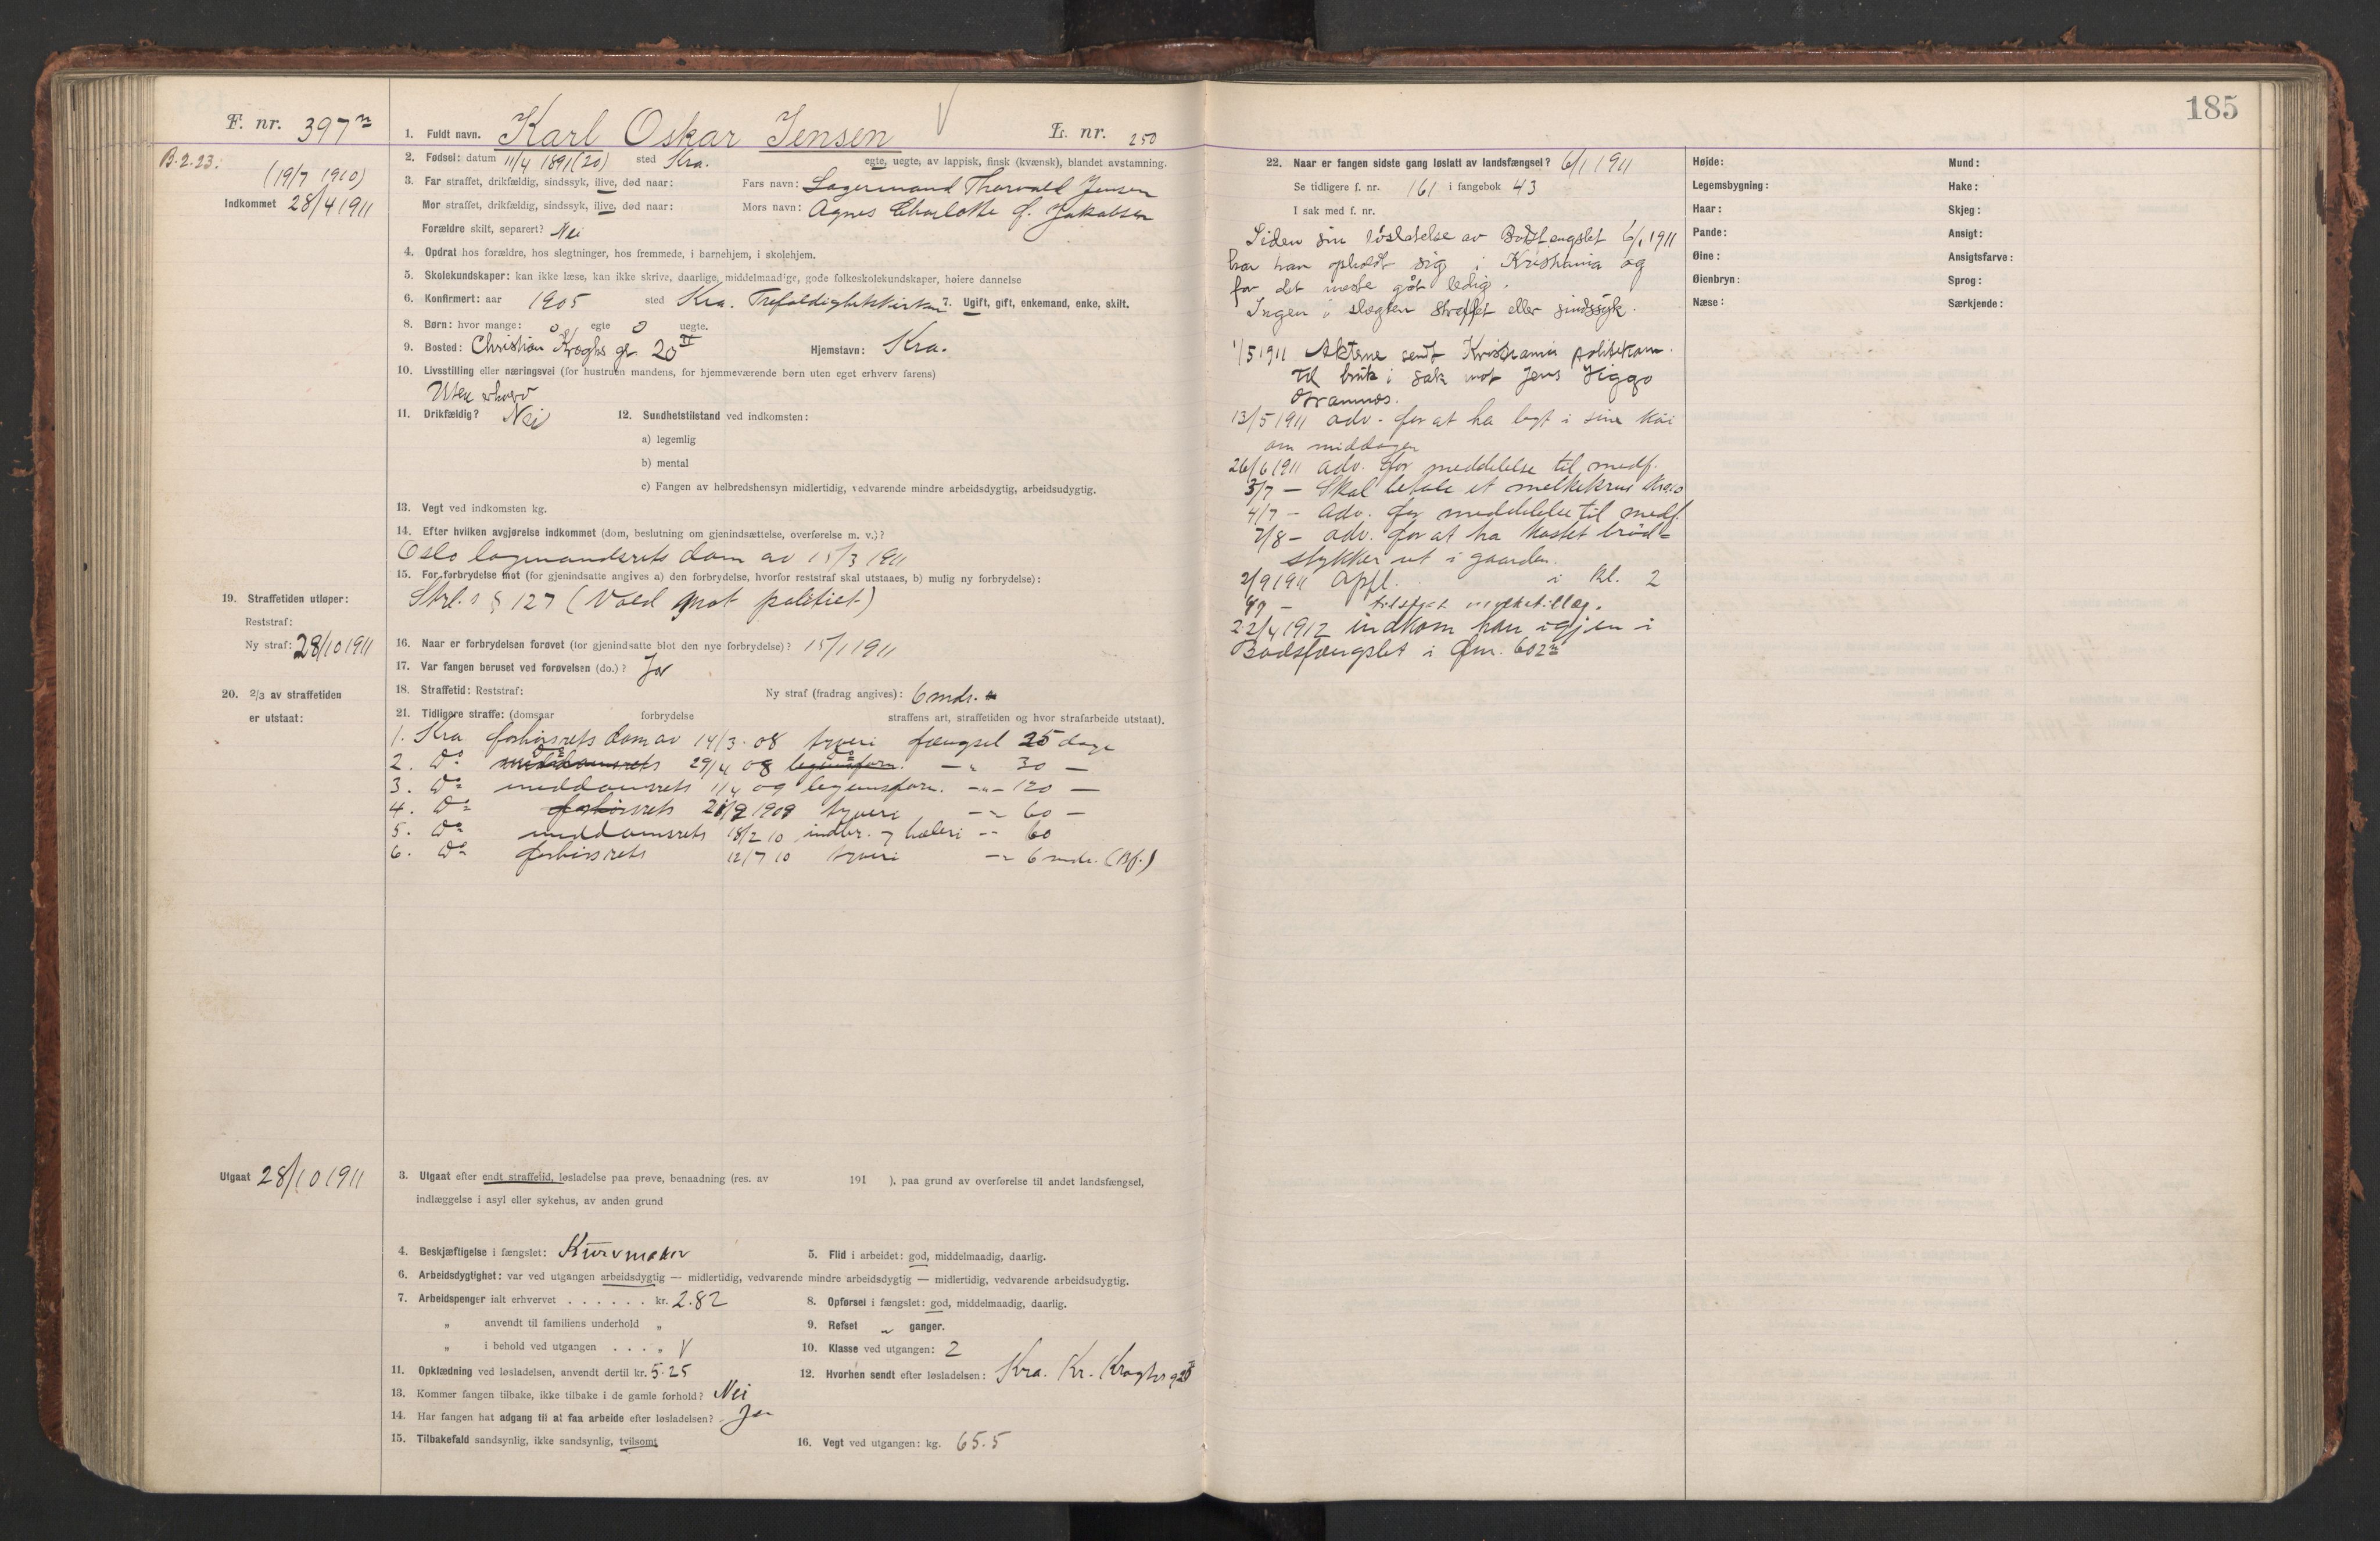 185
F. nr. 397
1. Fuldt navn. Karl Oskar Jensen
L. nr. 250
B.2.23.
(19/7 1910)
Indkommet 28/4 1911
2. Fødsel: datum 11/4 1891 (20) sted Kra. egte, uegte, av lappisk, finsk (kvænsk), blandet avstamning.
3. Far straffet, drikfældig, sindssyk, ilive, død naar: Fars navn: Lagermand Thorvald Jensen
Mor straffet, drikfældig, sindssyk, ilive, død naar: Mors navn: Agnes Charlotte f. Jakobsen
Forældre skilt, separert? Nei
4. Opdrat hos forældre, hos slegtninger, hos fremmede, i barnehjem, i skolehjem.
5. Skolekundskaper: kan ikke læse, kan ikke skrive, daarlige, middelmaadige, gode folkeskolekundskaper, høiere dannelse
6. Konfirmert: aar 1905 sted Kra. Trefoldighetskirken 7. Ugift, gift, enkemand, enke, skilt.
8. Børn: hvor mange: 0 egte 0 uegte.
9. Bosted: Christian Kroghs gt. 20 II Hjemstavn: Kra.
10. Livsstilling eller næringsvei (for hustruen mandens, for hjemmeværende børn uten eget erhverv farens)
Uten erhverv
11. Drikfældig? Nei 12. Sundhetstilstand ved indkomsten:
a) legemlig
b) mental
c) Fangen av helbredshensyn midlertidig, vedvarende mindre arbeidsdygtig, arbeidsudygtig.
13. Vegt ved indkomsten kg.
14. Efter hvilken avgjørelse indkommet (dom, beslutning om gjenindsættelse, overførelse m. v.)?
Oslo lagmandsrets dom av 15/3 1911
15. For forbrydelse mot (for gjenindsatte angives a) den forbrydelse, hvorfor reststraf skal utstaaes, b) mulig ny forbrydelse):
Strl.s § 127 (Vold mot politiet)
19. Straffetiden utløper:
Reststraf:
Ny straf: 28/10 1911
16. Naar er forbrydelsen forøvet (for gjenindsatte blot den nye forbrydelse)? 15/1 1911
17. Var fangen beruset ved forøvelsen (do.)? Ja
20. 2/3 av straffetiden
er utstaat:
18. Straffetid: Reststraf: Ny straf (fradrag angives): 6 mdr.
21. Tidligere straffe: (domsaar forbrydelse straffens art, straffetiden og hvor strafarbeide utstaat).
1. Kra forhørsrets dom av 14/3 08 tyveri fængsel 25 dage
2. Do meddomsrets 29/4 08 legemsforn. -"- 30 -
3. Do meddomsrets 11/4 09 legemsforn. -"- 120 -
4. Do forhørsrets 21/9 1909 tyveri -"- 60 -
5. Do meddomsrets 18/2 10 indbr. og hæleri -"- 60
6. Do forhørsrets 12/7 10 tyveri -"- 6 mdr. (Bf.)
Utgaat 28/10 1911
3. Utgaat efter endt straffetid, løsladelse paa prøve, benaadning (res. av 191 ), paa grund av overførelse til andet landsfængsel,
indlæggelse i asyl eller sykehus, av anden grund
4. Beskjæftigelse i fængslet: Kurvmaker 5. Flid i arbeidet: god, middelmaadig, daarlig.
6. Arbeidsdygtighet: var ved utgangen arbeidsdygtig — midlertidig, vedvarende mindre arbeidsdygtig — midlertidig, vedvarende arbeidsudygtig.
7. Arbeidspenger ialt erhvervet . . . . . . kr. 2.82 8. Opførsel i fængslet: god, middelmaadig, daarlig.
" anvendt til familiens underhold " 9. Refset " ganger.
" i behold ved utgangen . . . " V 10. Klasse ved utgangen: 2
11. Opklædning ved løsladelsen, anvendt dertil kr. 5.25 12. Hvorhen sendt efter løsladelsen: Kra. Kr. Kroghs g 20 II
13. Kommer fangen tilbake, ikke tilbake i de gamle forhold? Nei
14. Har fangen hat adgang til at faa arbeide efter løsladelsen? Ja
15. Tilbakefald sandsynlig, ikke sandsynlig, tvilsomt 16. Vegt ved utgangen: kg. 65.5
22. Naar er fangen sidste gang løslatt av landsfængsel? 6/1 1911
Se tidligere f. nr. 161 i fangebok 43
I sak med f. nr.
Siden sin løslatelse av Bodsfængslet 6/1 1911
har han opholdt sig i Kristiania og
for det meste gåt ledig.
Ingen i slægten straffet eller sindssyk.
1/5 1911 Akterne sendt Kristiania politikam.
til bruk i sak mot Jens Viggo
13/5 1911 adv. for at ha lagt i sin køi
om middagen
26/6 1911 adv. for meddelelse til medf.
3/7 – Skal betale et melkekrus
4/7 – adv. for meddelelse til medf.
7/8 – adv. for at ha kastet brød-
stykker ut i gaarden.
2/9 1911 Opfl. i kl. 2
22/4 1912 indkom han igjen i
Bodsfængslet i fnr. 602
Høide:
Legemsbygning:
Haar:
Pande:
Øine:
Øienbryn:
Næse:
Mund:
Hake:
Skjeg:
Ansigt:
Ansigtsfarve:
Sprog:
Særkjende: